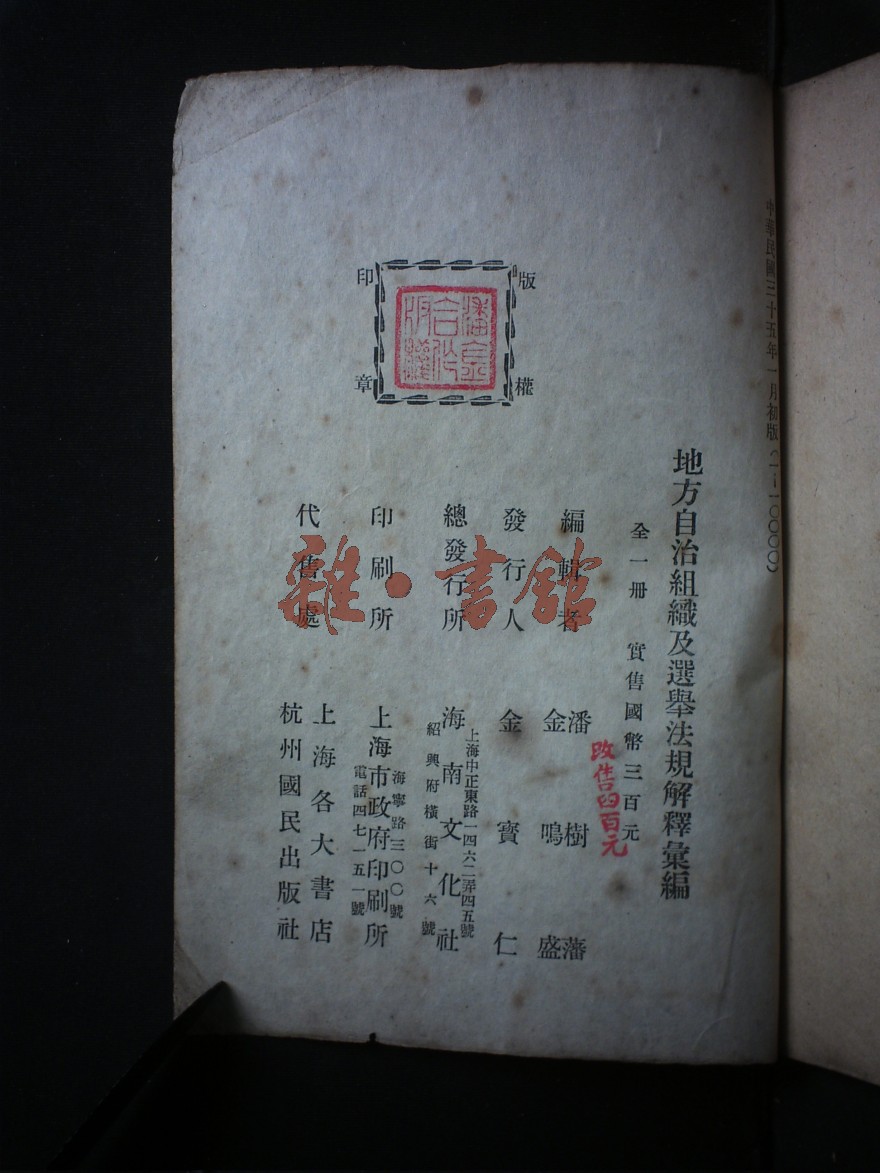 中華民國三十五年一月初版(1—1000)
地方自治組織及選舉法規解釋彙編
全一冊 實售國幣三百元
改售四百元
編輯者 潘樹藩
金鳴盛
發行人 金寶仁
總發行所 海南文化社
上海中正東路一四六二弄四五號
紹興府橫街十六號
印刷所 上海市政府印刷所
海寧路三〇〇號
電話四七一五一號
代售處 上海各大書店
杭州國民出版社
版權印章
雜·書館